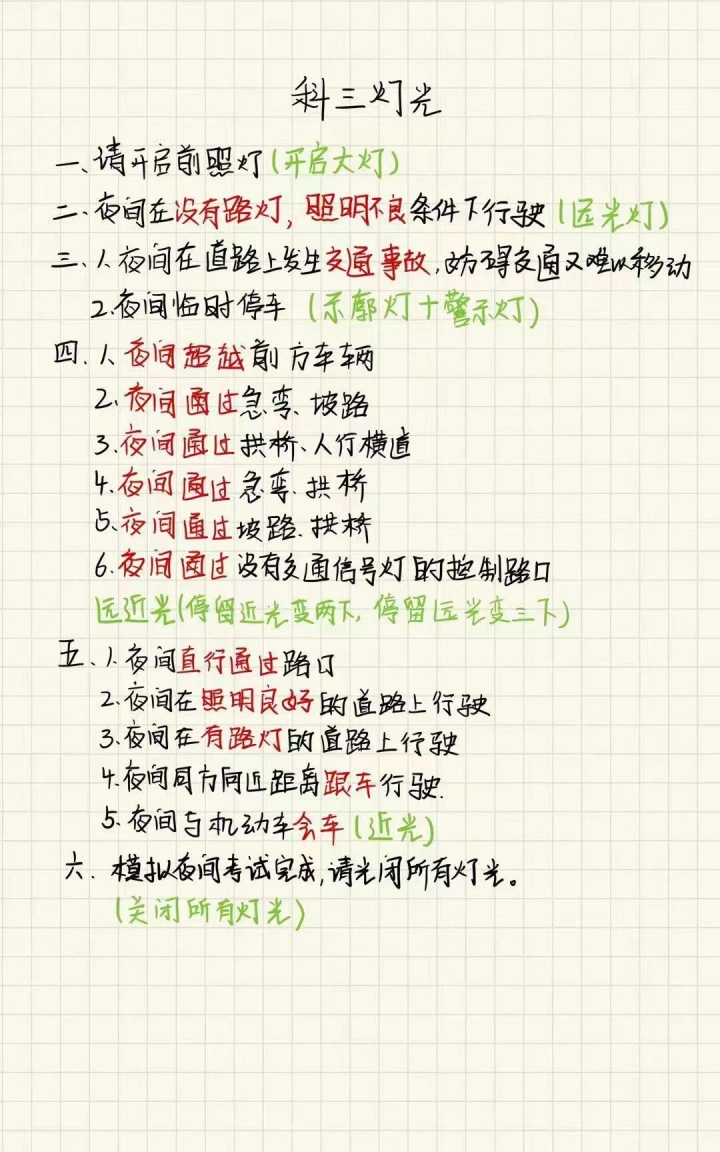 科三灯光
一、请开启前照灯(开启大灯)
二、夜间在没有路灯,照明不良条件下行驶(远光灯)
三、1、夜间在道路上发生交通事故,妨碍交通又难以移动
2.夜间临时停车 (示廓灯+警示灯)
四.1、夜间超越前方车辆
2、夜间通过急弯、坡路
3.夜间通过拱桥、人行横道
4.夜间通过急弯.拱桥
5、夜间通过坡路.拱桥
6.夜间通过没有交通信号灯的控制路口
远近光(停留近光变两下,停留远光变三下)
五、1、夜间直行通过路口
2.夜间在照明良好的道路上行驶
3.夜间在有路灯的道路上行驶
4.夜间同方向近距离跟车行驶.
5.夜间与机动车会车(近光)
六.模拟夜间考试完成,请关闭所有灯光。
(关闭所有灯光)